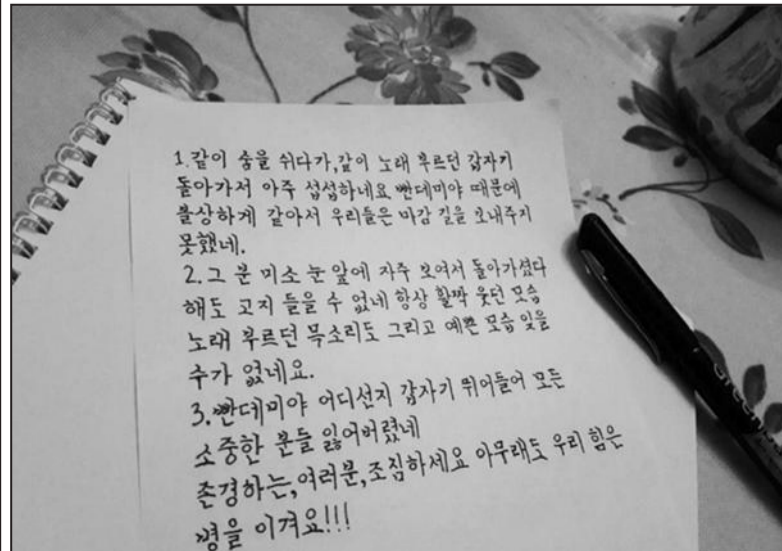 1.같이 숨을 쉬다가,같이 노래 부르던 갑자기
돌아가서 아주 섭섭하네요 빤데미야 때문에
불상하게 같아서 우리들은 마감 길을 보내주지
못했네.
2.그 분 미소 눈 앞에 자주 보여서 돌아가셨다
해도 고지 들을 수 없네 항상 활짝 웃던 모습
노래 부르던 목소리도 그리고 예쁜 모습 잊을
수가 없네요.
3.빤데미야 어디선지 갑자기 뛰어들어 모든
소중한 분들 잃어버렸네
존경하는,여러분,조짐하세요 아무래도 우리 힘은
병을 이겨요!!!